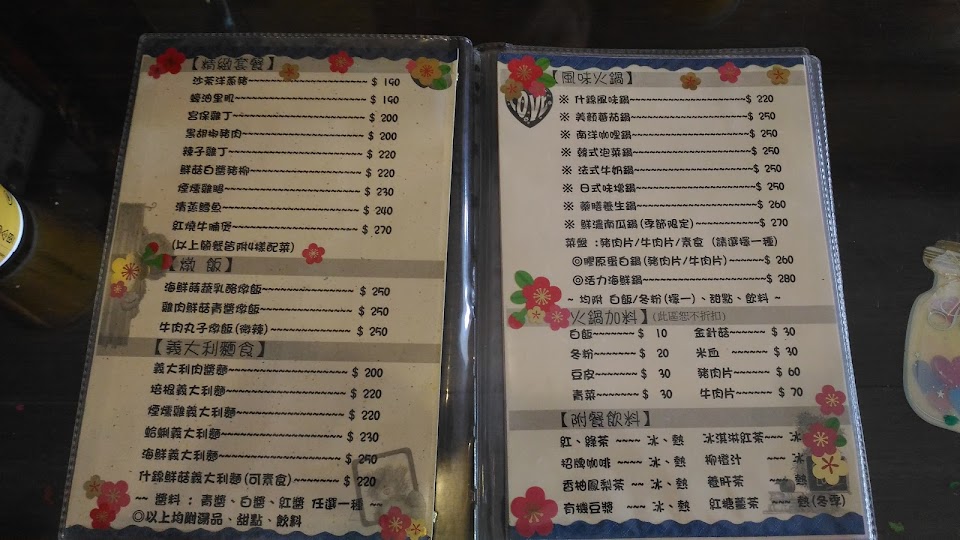 【精緻套餐】
沙茶洋蔥豬~~~~~~~~~~~~~~~~~~~~ $ 190
蠔油里肌~~~~~~~~~~~~~~~~~~~~ $ 190
宮保雞丁~~~~~~~~~~~~~~~~~~~~ $ 200
黑胡椒豬肉~~~~~~~~~~~~~~~~~~~~ $ 200
辣子雞丁~~~~~~~~~~~~~~~~~~~~ $ 220
鮮菇白醬豬柳~~~~~~~~~~~~~~~~~~~~ $ 220
煙燻雞腿~~~~~~~~~~~~~~~~~~~~ $ 230
清蒸鱈魚~~~~~~~~~~~~~~~~~~~~ $ 240
紅燒牛腩煲~~~~~~~~~~~~~~~~~~~~ $ 270
(以上簡餐皆附4樣配菜)
【燉 飯】
海鮮蒔蔬乳酪燉飯~~~~~~~~~~~~~~~~ $ 250
雞肉鮮菇青醬燉飯~~~~~~~~~~~~~~~~ $ 250
牛肉丸子燉飯(微辣)~~~~~~~~~~~~~~~~ $ 250
【義大利麵食】
義大利肉醬麵~~~~~~~~~~~~~~~~~~~~ $ 200
培根義大利麵~~~~~~~~~~~~~~~~~~~~ $ 220
煙燻雞義大利麵~~~~~~~~~~~~~~~~~~~~ $ 220
蛤蜊義大利麵~~~~~~~~~~~~~~~~~~~~ $ 230
海鮮義大利麵~~~~~~~~~~~~~~~~~~~~ $ 250
什錦鮮菇義大利麵(可素食)~~~~~~~~~~~~ $ 220
~~ 醬料 : 青醬、白醬、紅醬 任選一種 ~~
◎以上均附湯品、甜點、飲料
【風味火鍋】
LOVE
※ 什錦風味鍋~~~~~~~~~~~~~~~~~~~~$ 220
※ 美顏蕃茄鍋~~~~~~~~~~~~~~~~~~~~$ 250
※ 南洋咖哩鍋~~~~~~~~~~~~~~~~~~~~$ 250
※ 韓式泡菜鍋~~~~~~~~~~~~~~~~~~~~$ 250
※ 法式牛奶鍋~~~~~~~~~~~~~~~~~~~~$ 250
※ 日式味噌鍋~~~~~~~~~~~~~~~~~~~~$ 250
※ 藥膳養生鍋~~~~~~~~~~~~~~~~~~~~$ 260
※ 鮮濃南瓜鍋(季節限定)~~~~~~~~~~$ 270
菜盤 :豬肉片/牛肉片/素食 (請選擇一種)
◎膠原蛋白鍋(豬肉片/牛肉片)~~~~~~$ 260
◎活力海鮮鍋~~~~~~~~~~~~~~~~~~~~$ 280
~ 均附 白飯/冬粉(擇一)、甜點、飲料 ~
【火鍋加料】(此區恕不折扣)
白飯~~~~~~~$ 10 金針菇~~~~~~ $ 30
冬粉~~~~~~ $ 20 米血 ~~~~~~ $ 30
豆皮~~~~~~ $ 30 豬肉片~~~~~~ $ 60
青菜~~~~~~ $ 30 牛肉片~~~~~~ $ 70
【附餐飲料】
紅、綠茶 ~~~~ 冰、熱 冰淇淋紅茶~~~ 冰
招牌咖啡 ~~~~ 冰、熱 柳橙汁 ~~~ 冰
香柚鳳梨茶 ~~~ 冰、熱 養肝茶 ~~~ 熱
有機豆漿 ~~~~ 冰、熱 紅糖薑茶 ~~~ 熱(冬季)